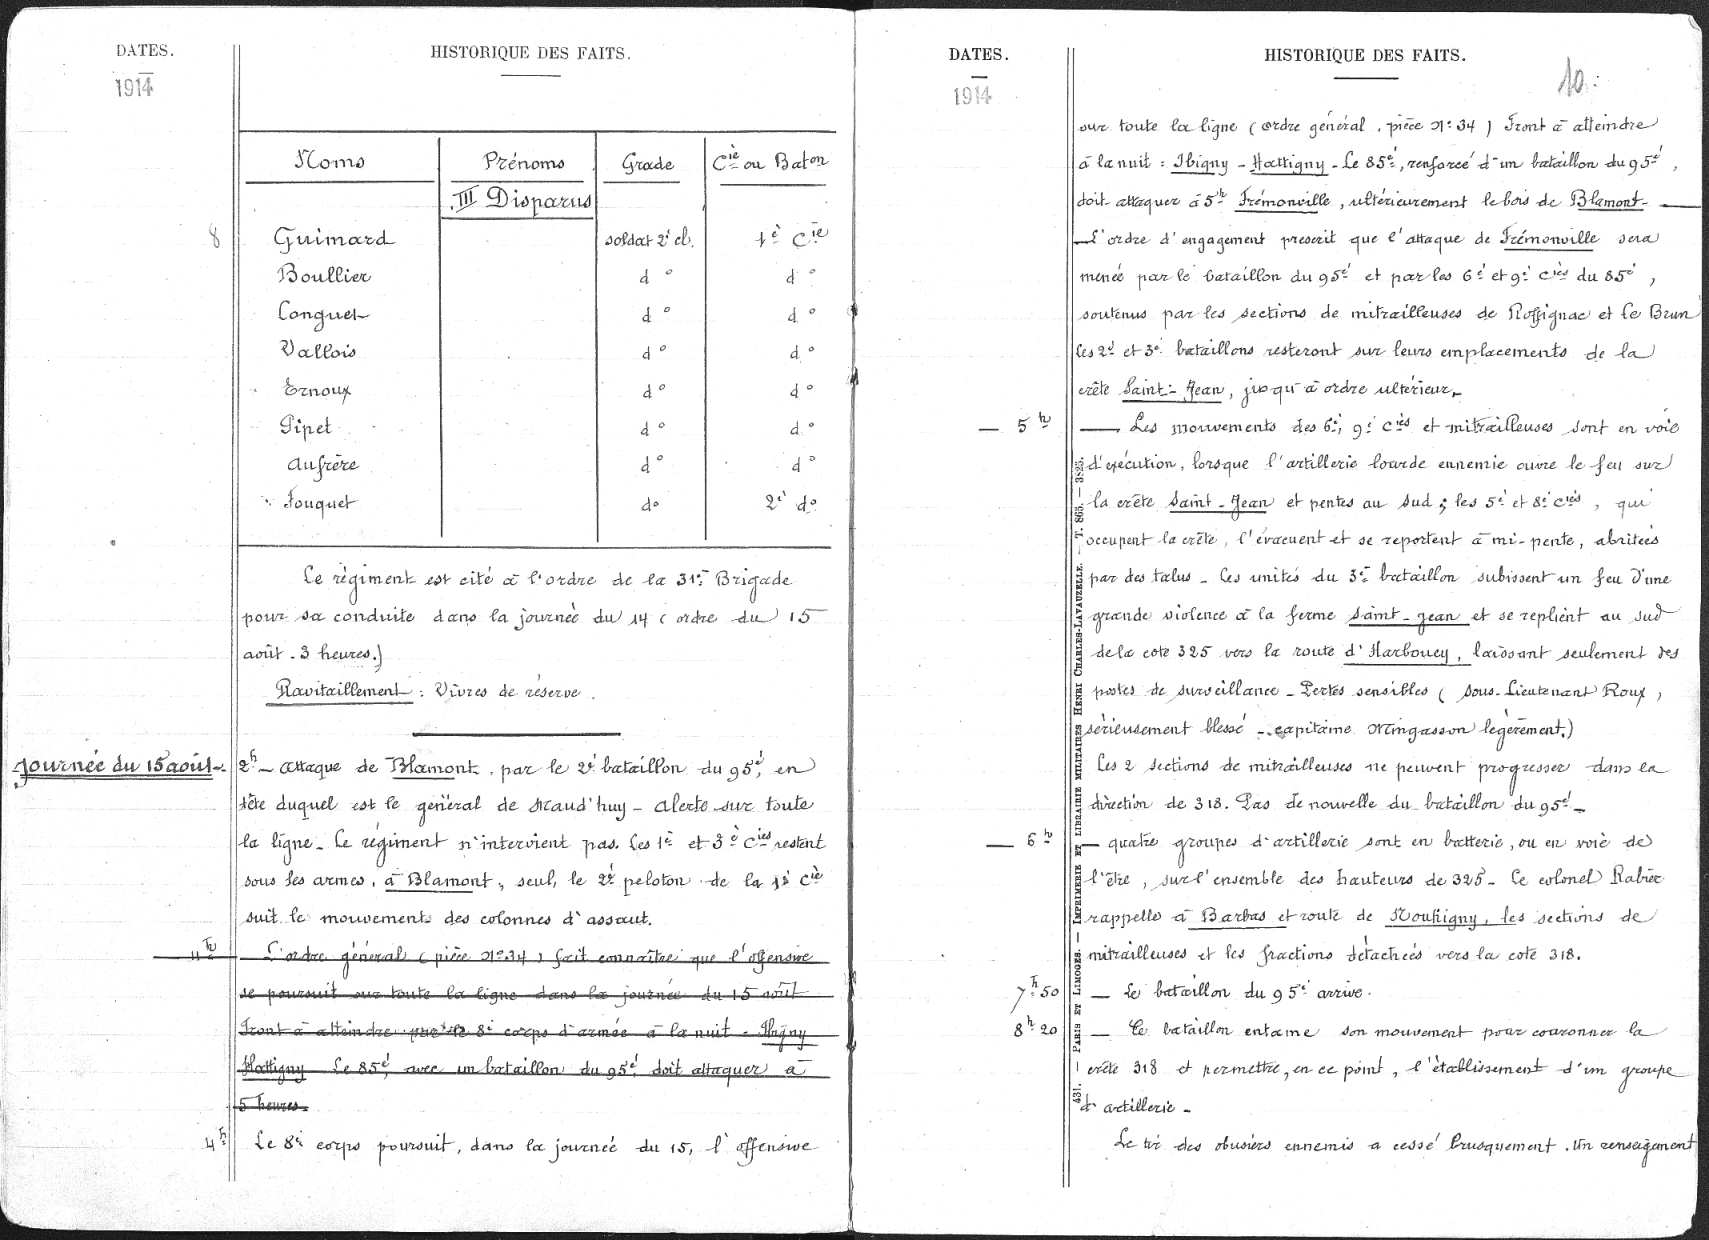 DATES.
HISTORIQUE DES FAITS.
1914
Noms Prénoms Grade Cie ou Baton
III Disparus
8 Guimard soldat 2e cl. 1e Cie
Boullier do do
Conguet do do
Vallois do do
Ernoux do do
Pipet do do
Aufrère do do
Fouquet do 2e do
Le régiment est cité à l'ordre de la 31e Brigade
pour sa conduite dans la journée du 14 (ordre du 15
août. 3 heures.)
Ravitaillement : Vivres de réserve.
Journée du 15 août. 2h - Attaque de Blamont, par le 2e bataillon du 95e, en
tête duquel est le général de Maud'huy - Alerte sur toute
la ligne - Le régiment n'intervient pas. Les 1e et 3e Cies restent
sous les armes, à Blamont, seul, le 2e peloton de la 1e Cie
suit le mouvement des colonnes d'assaut.
4h L'ordre général (pièce No 34) fait connaître que l'offensive
se poursuit sur toute la ligne dans la journée du 15 août
Front à atteindre par le 8e corps d'armée à la nuit - Ibigny
Hattigny Le 85e, avec un bataillon du 95e, doit attaquer à
5 heures.
4h Le 8e corps poursuit, dans la journée du 15, l'offensive
DATES.
HISTORIQUE DES FAITS.
1914
10.
sur toute la ligne (ordre général, pièce No 34) Front à atteindre
à la nuit : Ibigny - Hattigny - Le 85e, renforcé d'un bataillon du 95e,
doit attaquer à 5h Frémonville, ultérieurement le bois de Blamont -
- L'ordre d'engagement prescrit que l'attaque de Frémonville sera
menée par le bataillon du 95e et par les 6e et 9e Cies du 85e,
soutenus par les sections de mitrailleuses de Roffignac et Le Brun
Les 2e et 3e bataillons resteront sur leurs emplacements de la
crête Saint-Jean, jusqu'à ordre ultérieur.
- 5h - Les mouvements des 6e, 9e Cies et mitrailleuses sont en voie
d'exécution, lorsque l'artillerie lourde ennemie ouvre le feu sur
la crête Saint-Jean et pentes au sud ; les 5e et 8e Cies, qui
occupent la crête, l'évacuent et se reportent à mi-pente, abritées
par des talus - Les unités du 3e bataillon subissent un feu d'une
grande violence à la ferme Saint-Jean et se replient au sud
de la cote 325 vers la route d'Harbouey, laissant seulement des
postes de surveillance - Pertes sensibles (Sous-Lieutenant Roux,
sérieusement blessé - capitaine Mingasson légèrement.)
Les 2 sections de mitrailleuses ne peuvent progresser dans la
direction de 318. Pas de nouvelle du bataillon du 95e -
- 6h - quatre groupes d'artillerie sont en batterie, ou en voie de
l'être, sur l'ensemble des hauteurs de 325 - Le colonel Rabier
rappelle à Barbas et route de Nouhigny, les sections de
mitrailleuses et les fractions détachées vers la cote 318.
7h50 - Le bataillon du 95e arrive.
8h20 - Ce bataillon entame son mouvement pour couronner la
crête 318 et permettre, en ce point, l'établissement d'un groupe
d'artillerie -
Le tir des obusiers ennemis a cessé brusquement. Un renseignement
431. — PARIS ET LIMOGES. — IMPRIMERIE ET LIBRAIRIE MILITAIRES HENRI CHARLES-LAVAUZELLE. — T. 863. — 3823.